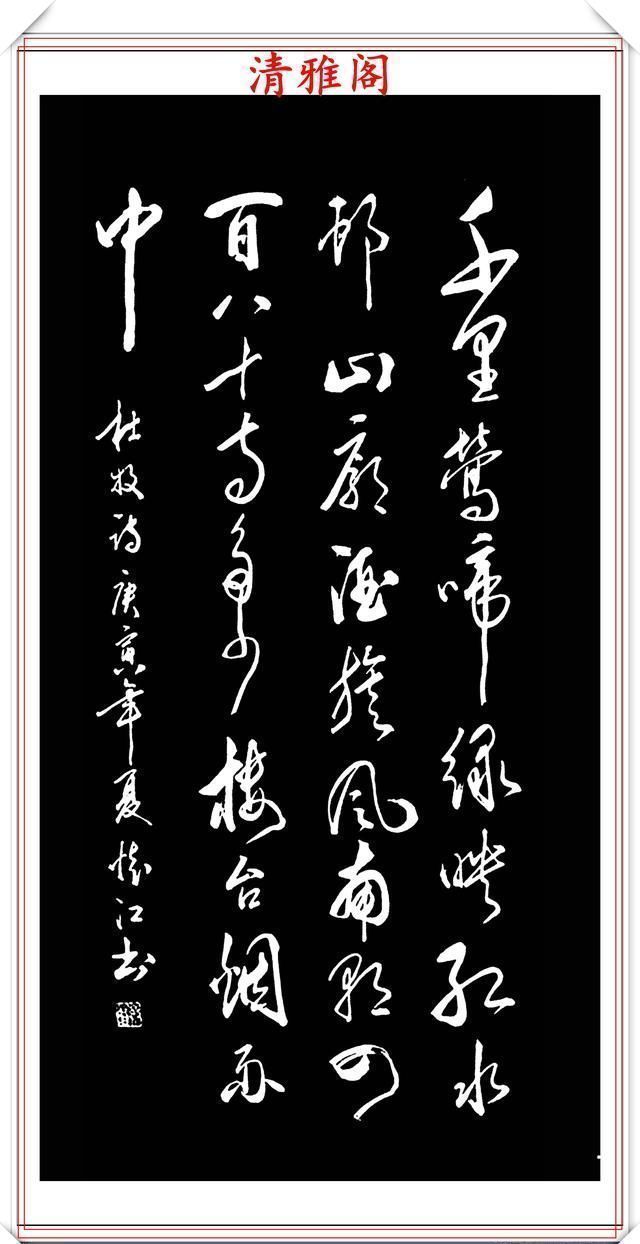 清雅阁
千里鶯啼绿映红水
邨山郭酒旗风南朝四
百八十寺多少楼台烟雨
中
杜牧诗庚寅年夏怀江书